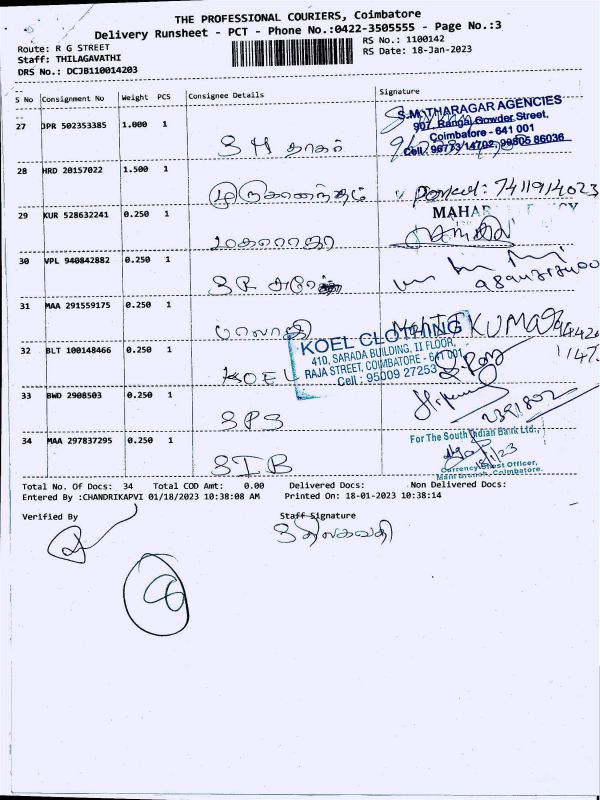 THE PROFESSIONAL COURIERS, Coimbatore
Delivery Runsheet - PCT - Phone No.:0422-3505555 - Page No.:3
Route: R G STREET
RS No.: 1100142
Staff: THILAGAVATHI
RS Date: 18-Jan-2023
DRS No.: DCJB110014203
S No Consignment No Weight PCS Consignee Details Signature
27 JPR 502353385 1.000 1 S M தாகம்
S.M. THARAGAR AGENCIES
907, Rangai Gowder Street,
Coimbatore - 641 001
28 HRD 20157022 1.500 1
29 KUR 528632241 0.250 1 மகாராஜா
30 VPL 940842882 0.250 1 S R
31 MAA 291559175 0.250 1 பாலாஜி
32 BLT 100148466 0.250 1 KOEL
KOEL CLOTHING
410, SARADA BUILDING, II FLOOR,
RAJA STREET, COIMBATORE - 641 001
Cell : 95009 27253
33 BWD 2908503 0.250 1 SPS
34 MAA 297837295 0.250 1 SIB
For The South Indian Bank Ltd.,
Currency Chest Officer,
Main Branch, Coimbatore.
Total No. Of Docs: 34 Total COD Amt: 0.00 Delivered Docs: Non Delivered Docs:
Entered By :CHANDRIKAPVI 01/18/2023 10:38:08 AM Printed On: 18-01-2023 10:38:14
Verified By Staff Signature